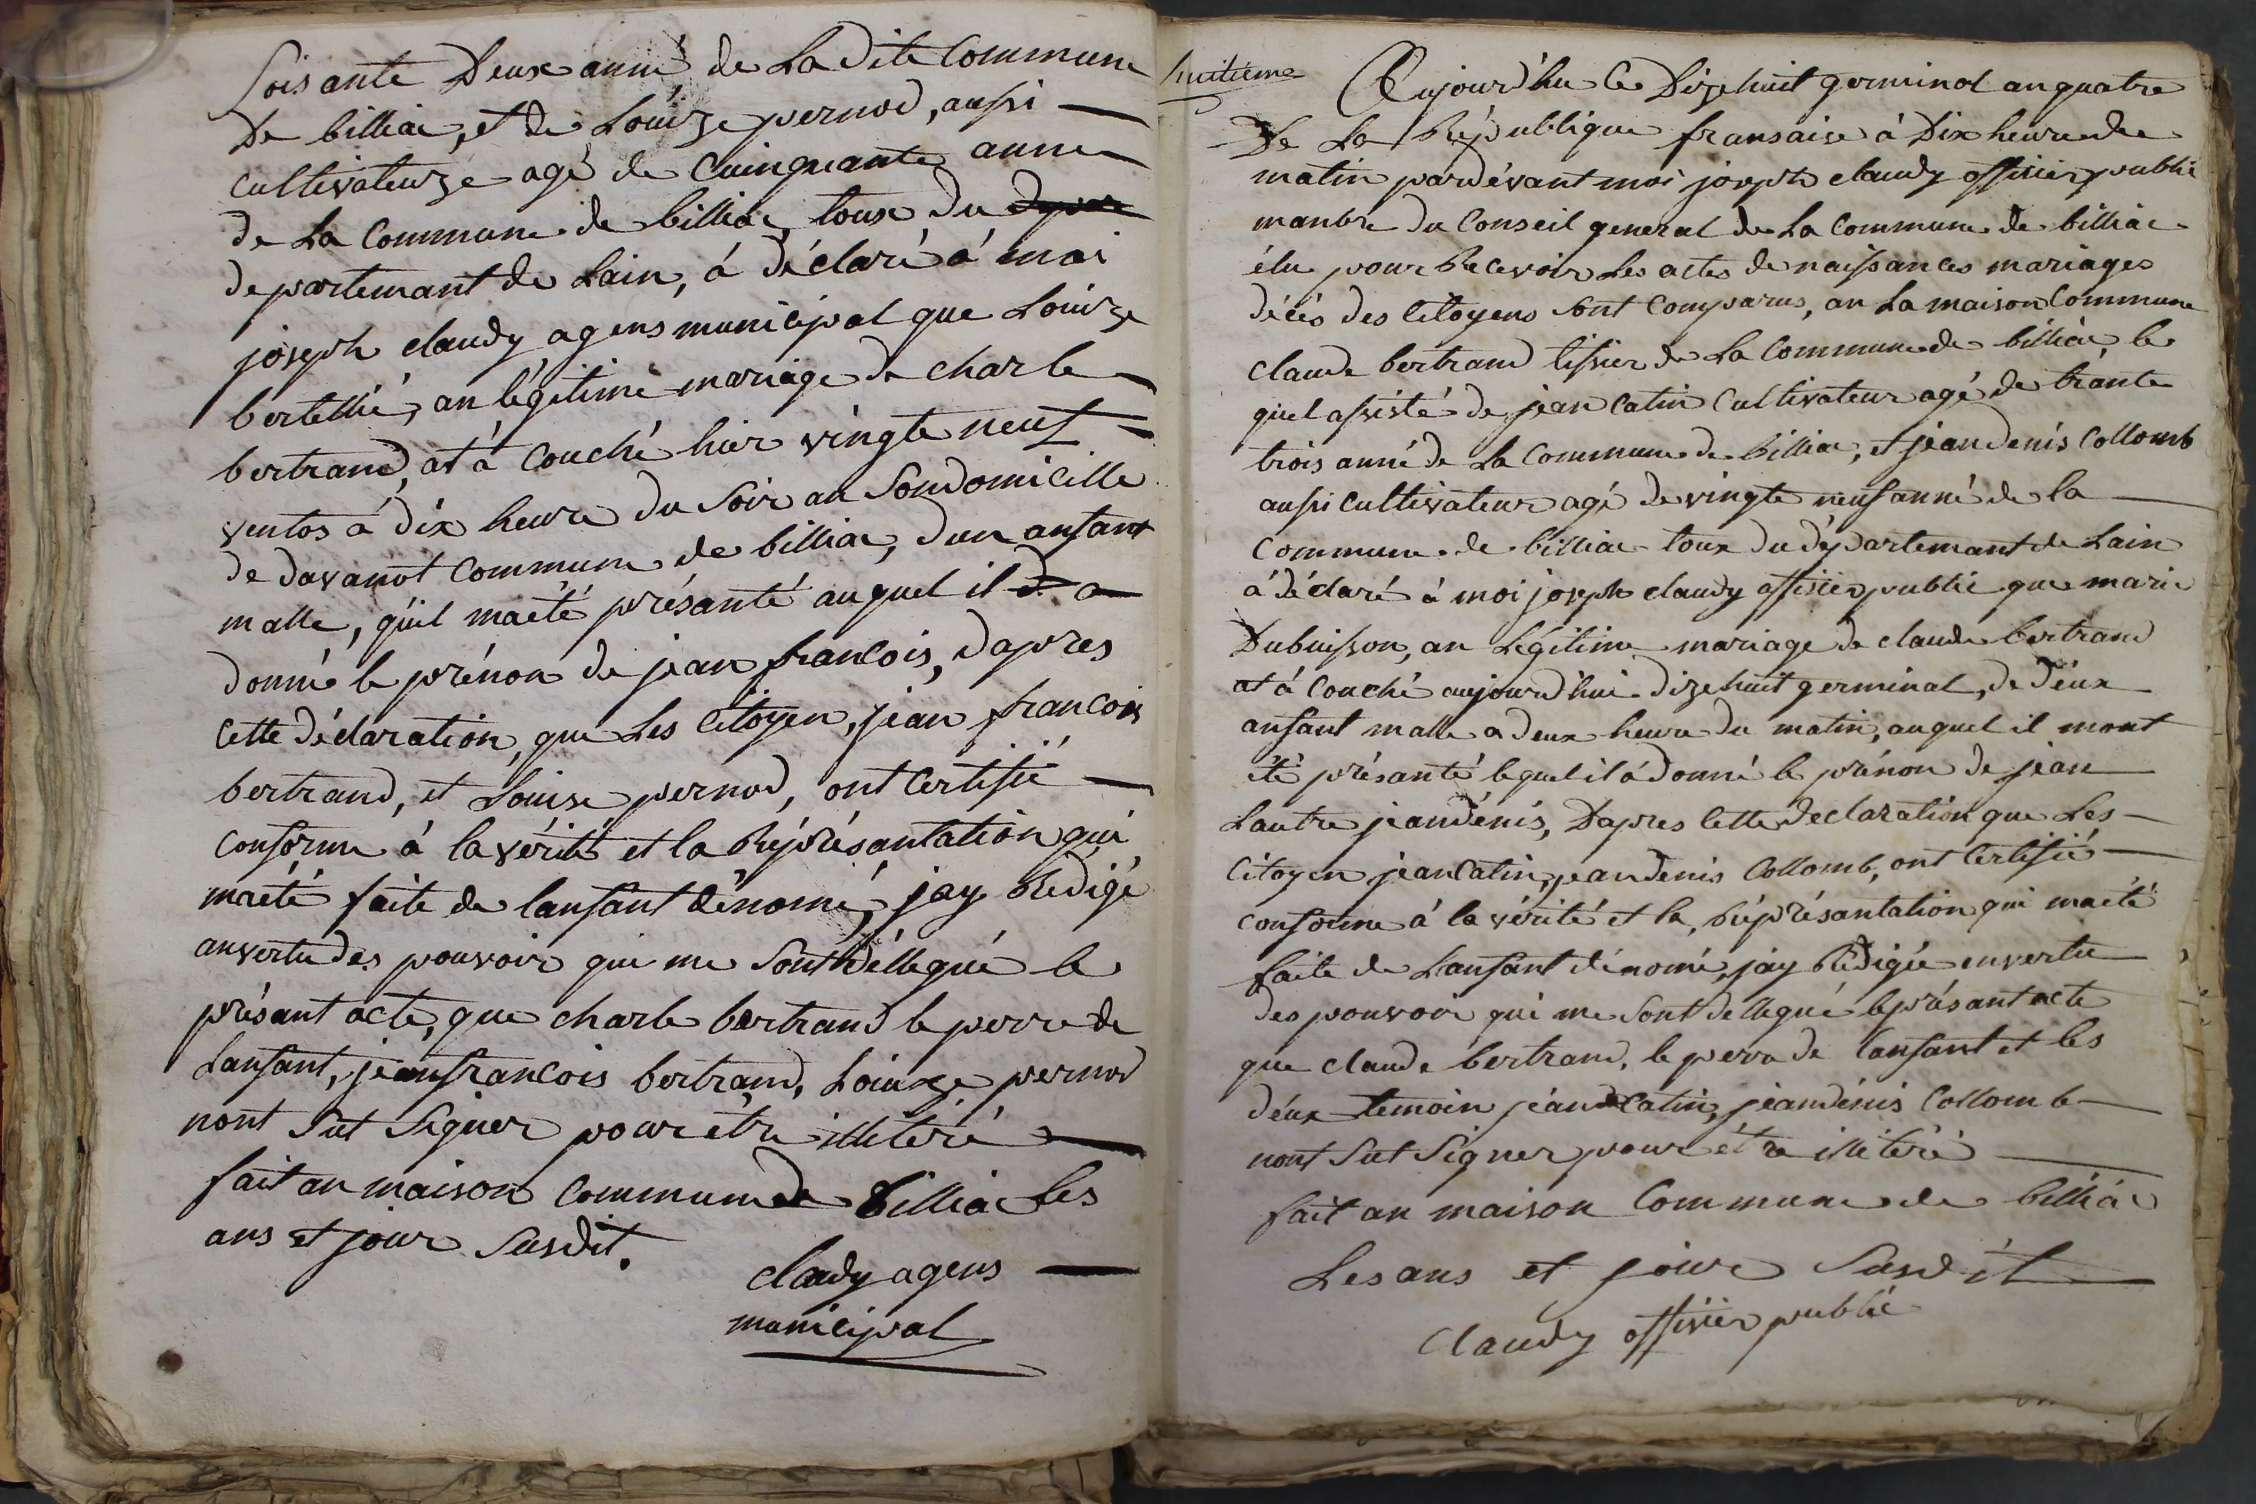 Soisante Deux anné de La Dite Commune
De billiac, et de Louize pernod, aussi
Cultivateuze agé de Cuinquante anne
de La Commune de billiac toux du
departemant de Lain, à déclaré à moi
joseph claudy agens municipal que Louize
bertellié, an légitime mariage de charle
bertrand, at à Couché hier vingte neuf
ventos à dix heure du Soir au Sondomicille
de davanot Commune de billiac, dun anfant
malle, quil maeté présanté auquel il a
donné le prénon de jean francois, dapres
Cette déclaration, que Les Citoyen, jean francois
bertrand, et Louise pernod, ont Certifié
Conforme à la vérité et la Réprésantation qui
maeté faite de lanfant dénomé, jay Redigé
anvertu des pouvoir qui me Sont déllegué le
présant acte, que charle bertrand le perre de
Lanfant, jeanfrancois bertrand, Louize pernod
nont Sut Signer pour être illiteré
fait an maison Commune de billiac Les
ans et jour Susdit.
Claudy agens
municipal
huitieme
Aujourd'hu Ce Dizehuit germinal an quatre
De La République fransaise à Dix heure de
matin pardévant moi joseph claudy offisier public
manbre du Conseil general de La Commune de billiac
élu pour Recevoir Les actes de naissances mariages
décés des Citoyens sont Comparus, an La maison Commune
Claude bertrand tissier de La Commune de billiac le
quel assisté de jean Catin Cultivateur agé de trante
trois anné de La Commune de billiac, et jeandenis Collomb
aussi Cultivateur agé de vingte neuf anné de la
Commune de billiac toux du départemant de Lain
à déclaré à moi joseph claudy offisier public que marie
Dubuisson, an Légitime mariage de claude bertrand
at à Couché aujourd'hui dizehuit germinal, de déux
anfant malle a deux heure du matin, auquel il mont
été présanté lequel il à donné le prénon de jean
Lautre jeandénis, Dapres Cette declaration que Les
Citoyen jean Catin, jeandenis Collomb, ont Certifié
Conforme à la vérité et la Réprésantation qui maeté
faite de Lanfant dénomé, jay Rédigée envertu
des pouvoir qui me Sont dellegué le présant acte
que claude bertrand, le perre de Lanfant et les
déux temoin jean Catin, jeandénis Collomb
nont Sut Signer pour étre illiteré
fait an maison Commune de billiac
Les ans et jour Susdit
Claudy offisier public